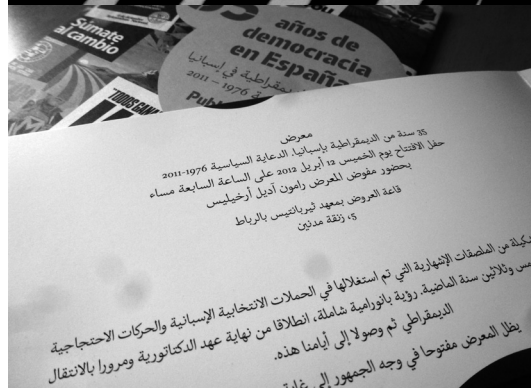 Súmate
al cambio
años de
democracia
en España
2011 – 1976
Publ
"TODOS GANA
معرض
35 سنة من الديمقراطية بإسبانيا. الدعاية السياسية 1976-2011
حفل الافتتاح يوم الخميس 12 أبريل 2012 على الساعة السابعة مساء
بحضور مفوض المعرض رامون آديل أرخيليس
قاعة العروض بمعهد ثيربانتيس بالرباط
5، زنقة مدنين
من الملصقات الإشهارية التي تم استغلالها في الحملات الانتخابية الإسبانية والحركات الاحتجاجية
وثلاثين سنة الماضية. رؤية بانورامية شاملة، انطلاقا من نهاية عهد الدكتاتورية ومرورا بالانتقال
الديمقراطي ثم وصولا إلى أيامنا هذه.
يظل المعرض مفتوحا في وجه الجمهور إلى غاية